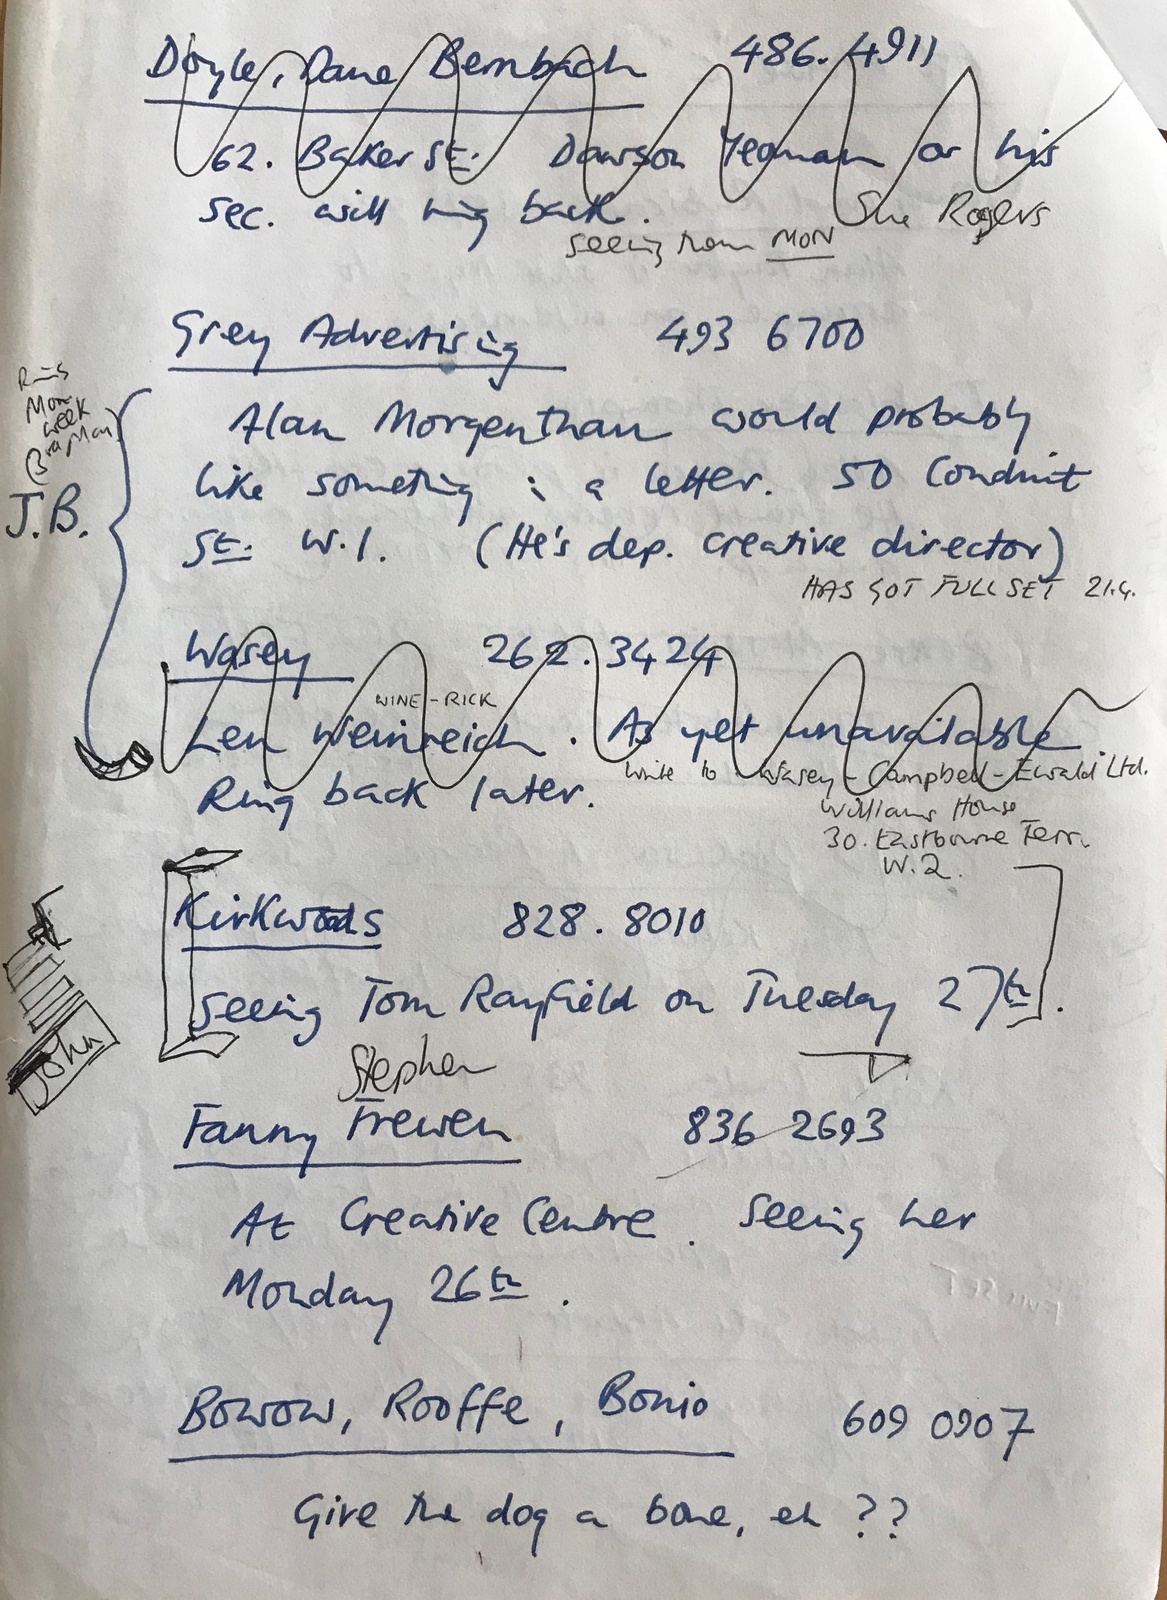 Doyle, Dane Bernbach 486.4911
62. Baker St. Dawson Yeoman or his
sec. will ring back. Sue Rogers
seeing them MON
Grey Advertising 493 6700
Ring
Mon
week
J.B.
Alan Morgenthau would probably
like something in a letter. 50 Conduit
St. W.1. (He's dep. creative director)
HAS GOT FULL SET 21.4.
Wasey 262.3424
WINE-RICK
Len Weinreich. As yet unavailable.
Ring back later.
Write to Wasey-Campbell-Ewald Ltd.
Williams House
30. Eastbourne Terr.
W.2.
Kirkwoods 828.8010
Seeing Tom Rayfield on Tuesday 27th.
John
Stephen
Fanny Frewen 836 2693
At Creative Centre. Seeing her
Monday 26th.
Bowow, Rooffe, Bonio 609 0907
Give the dog a bone, eh ??